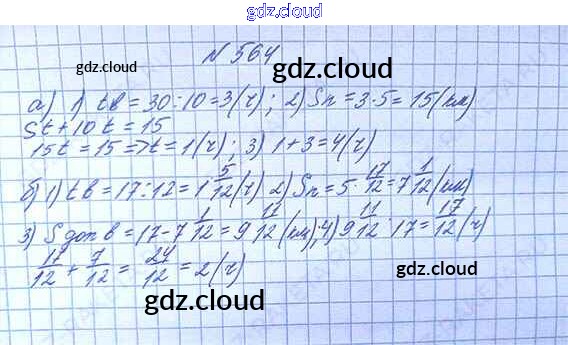 gdz.ru
gdz.com
N 564
gdz.com
gdz.com
а) 1) tв = 30 : 10 = 3 (ч); 2) Sп = 3 · 5 = 15 (км)
5t + 10t = 15
15t = 15 => t = 1 (ч); 3) 1 + 3 = 4 (ч)
б) 1) tв = 17 : 12 = 1 5/12 (ч) 2) Sп = 5 · 17/12 = 7 1/12 (км)
3) S доп в = 17 - 7 1/12 = 9 11/12 (км); 4) 9 11/12 : 17 = 17/12 (ч)
17/12 + 7/12 = 24/12 = 2 (ч)
gdz.com
gdz.com